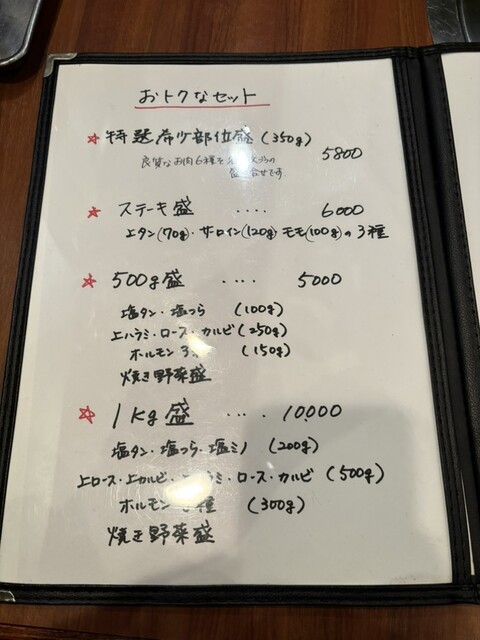 おトクなセット
☆ 特選希少部位盛 (350g)
良質なお肉6種を
盛合せです
5800
☆ ステーキ盛 ‥‥ 6000
上タン(70g)・サーロイン(120g) モモ(100g)の3種
☆ 500g盛 ‥‥ 5000
塩タン・塩つら (100g)
上ハラミ・ロース・カルビ(250g)
ホルモン 3 (150g)
焼き野菜盛
☆ 1kg盛 ‥‥ 10,000
塩タン・塩つら・塩ミノ (200g)
上ロース・上カルビ・ ラミ・ロース・カルビ (500g)
ホルモン 種 (300g)
焼き野菜盛